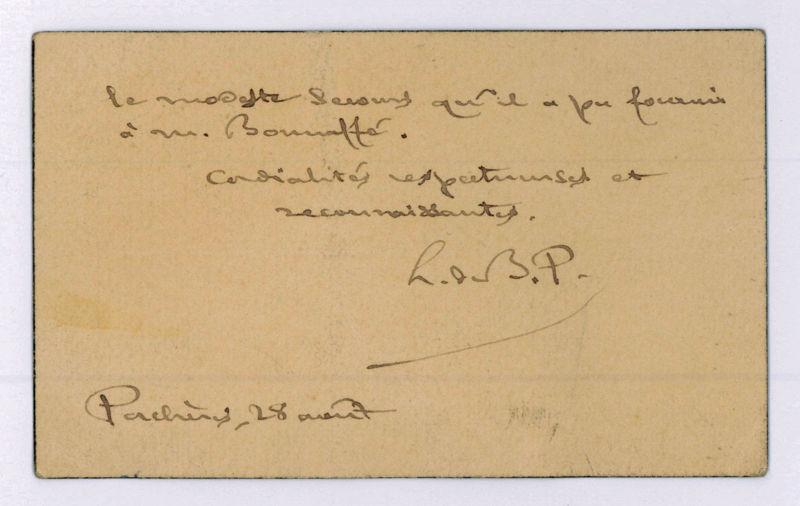 le modeste secours qu'il a pu fournir
à M. Bonnaffé.
Cordialités respectueuses et
reconnaissantes.
L. de B. P.
Porchères, 28 août